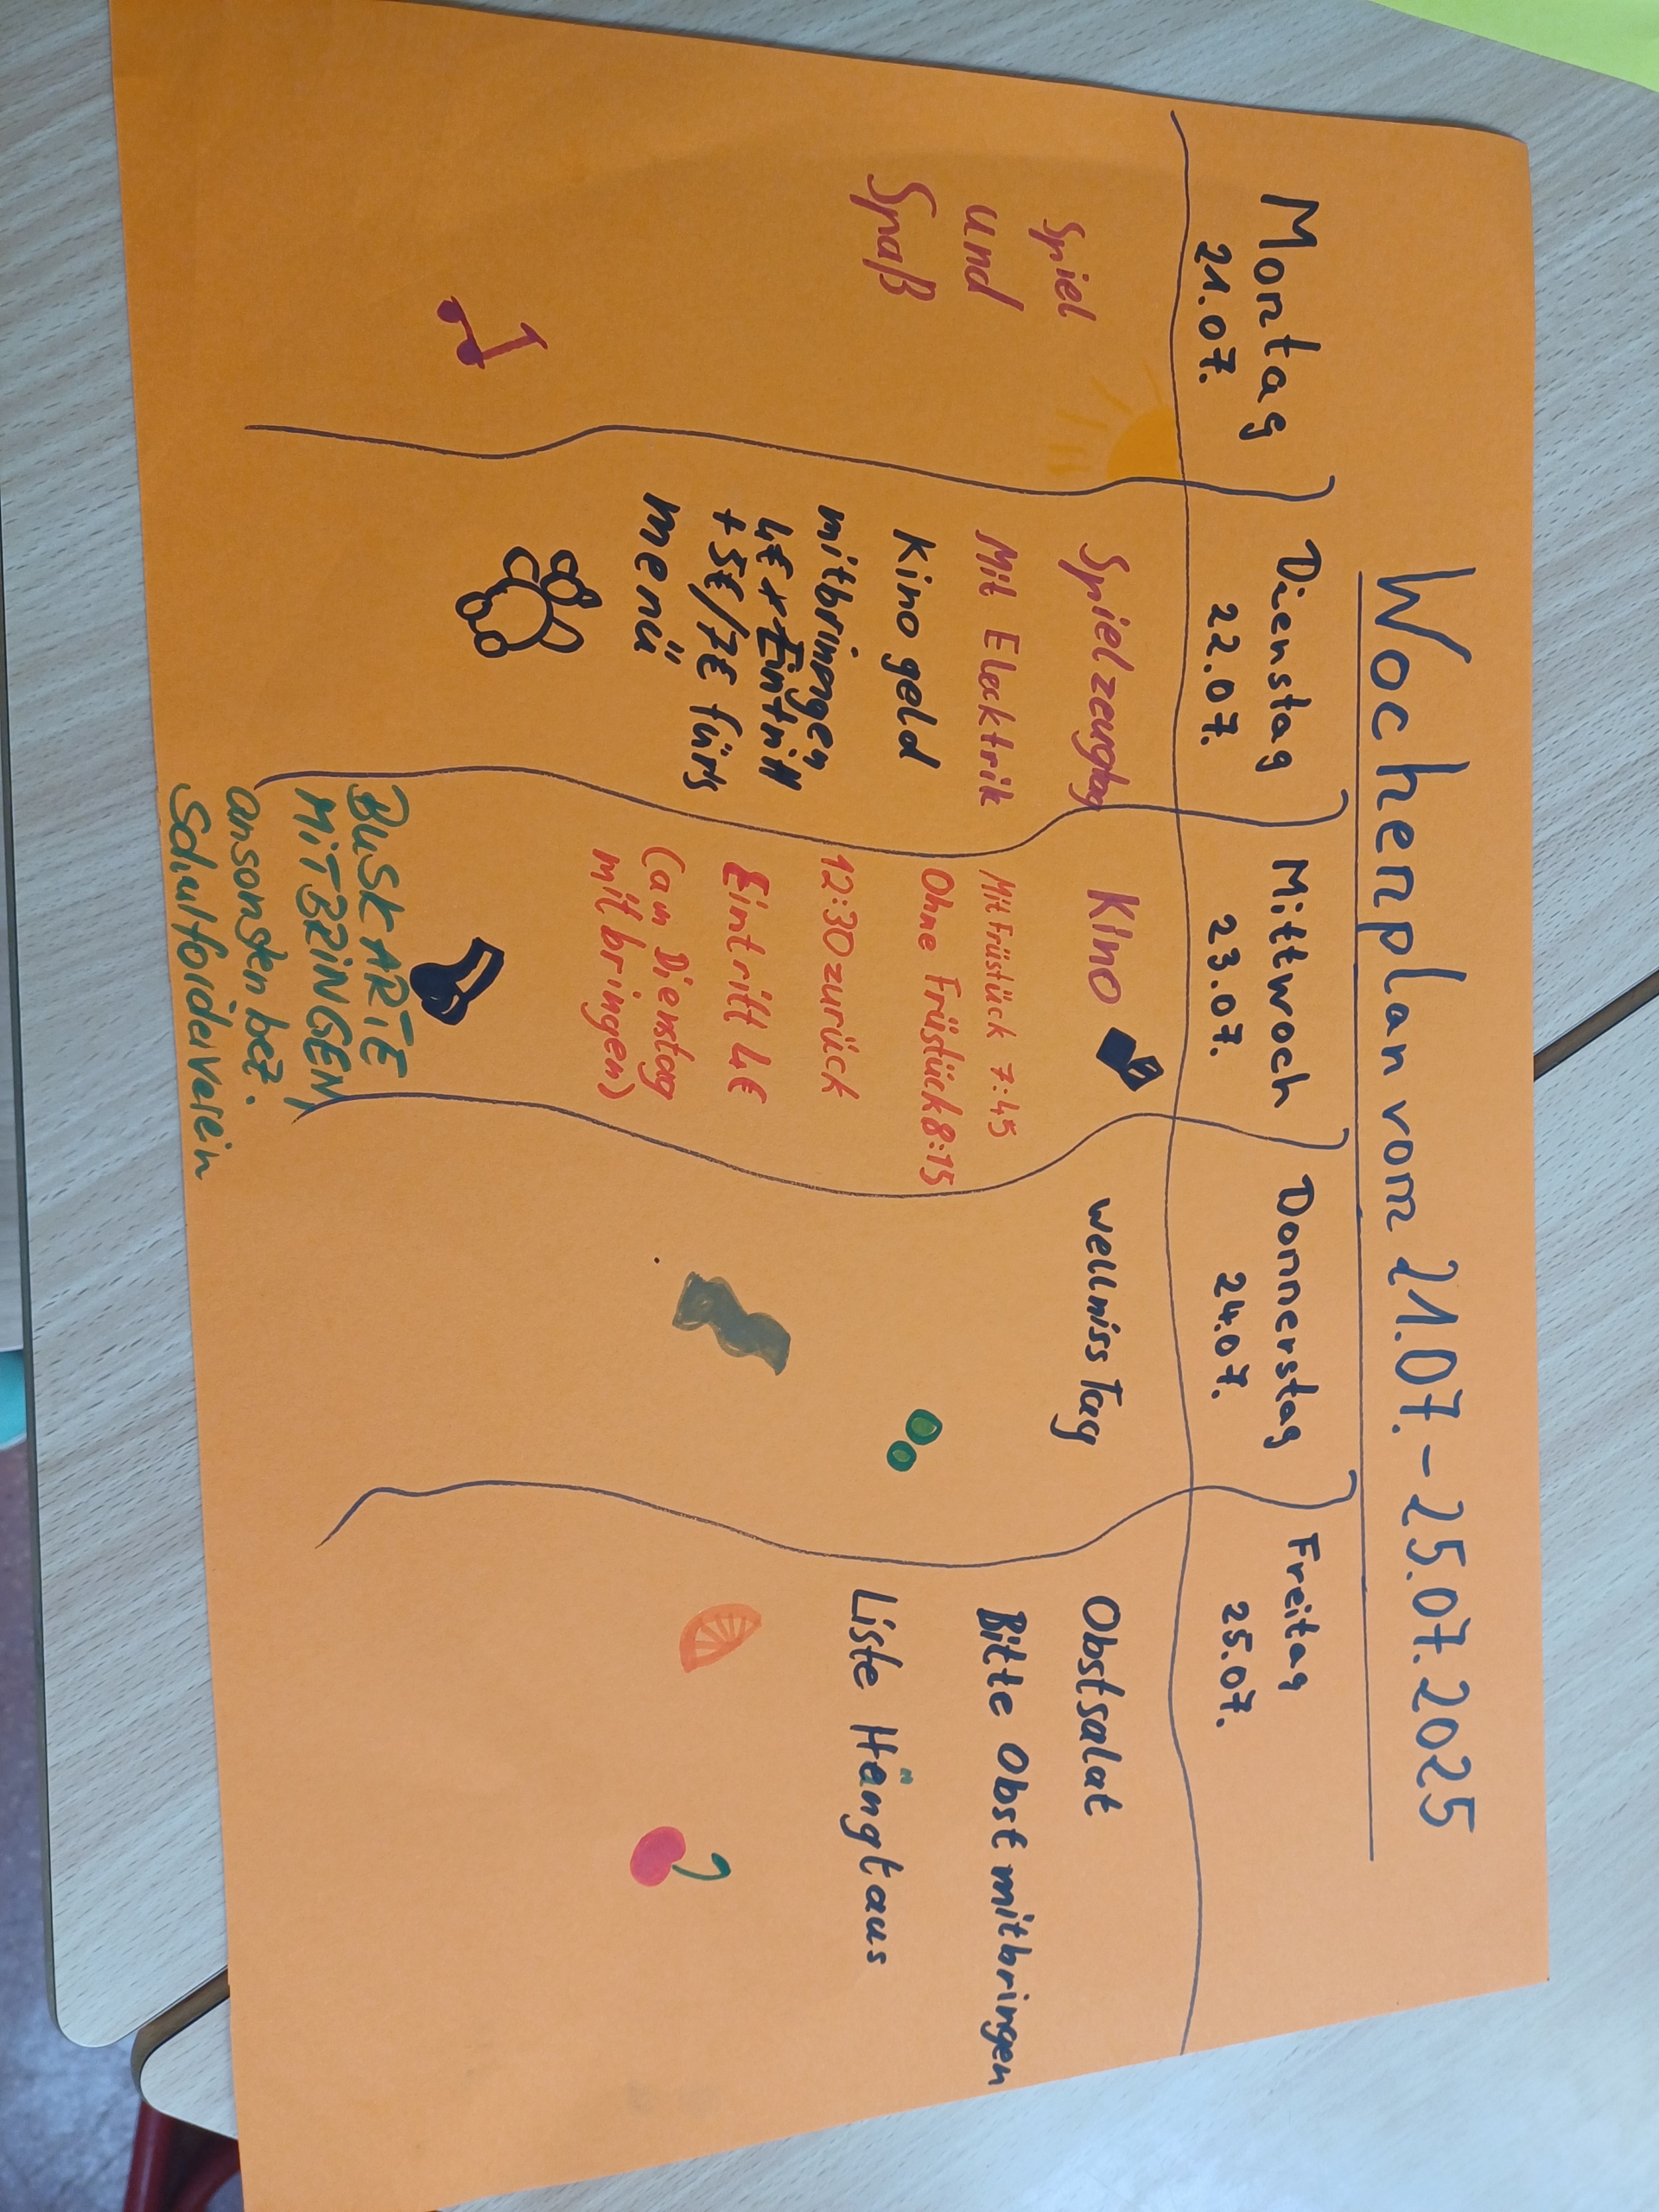 Wochenplan vom 21.07. - 25.07.2025
Montag
21.07.
Spiel
und
Spaß
Dienstag
22.07.
Spielzeugtag
Mit Elecktrik
Kino geld
mitbringen
4€ Eintritt
+ 5€/7€ fürs
menü
Mittwoch
23.07.
Kino
Mit Früstück 7:45
Ohne Früstück 8:15
12:30 zurück
Eintritt 4€
(am Dienstag
mitbringen)
BUSKARTE
MiTBRiNGEN
ansonsten bez.
Schulförderverein
Donnerstag
24.07.
wellniss Tag
Freitag
25.07.
Obstsalat
Bitte Obst mitbringen
Liste Hängt aus